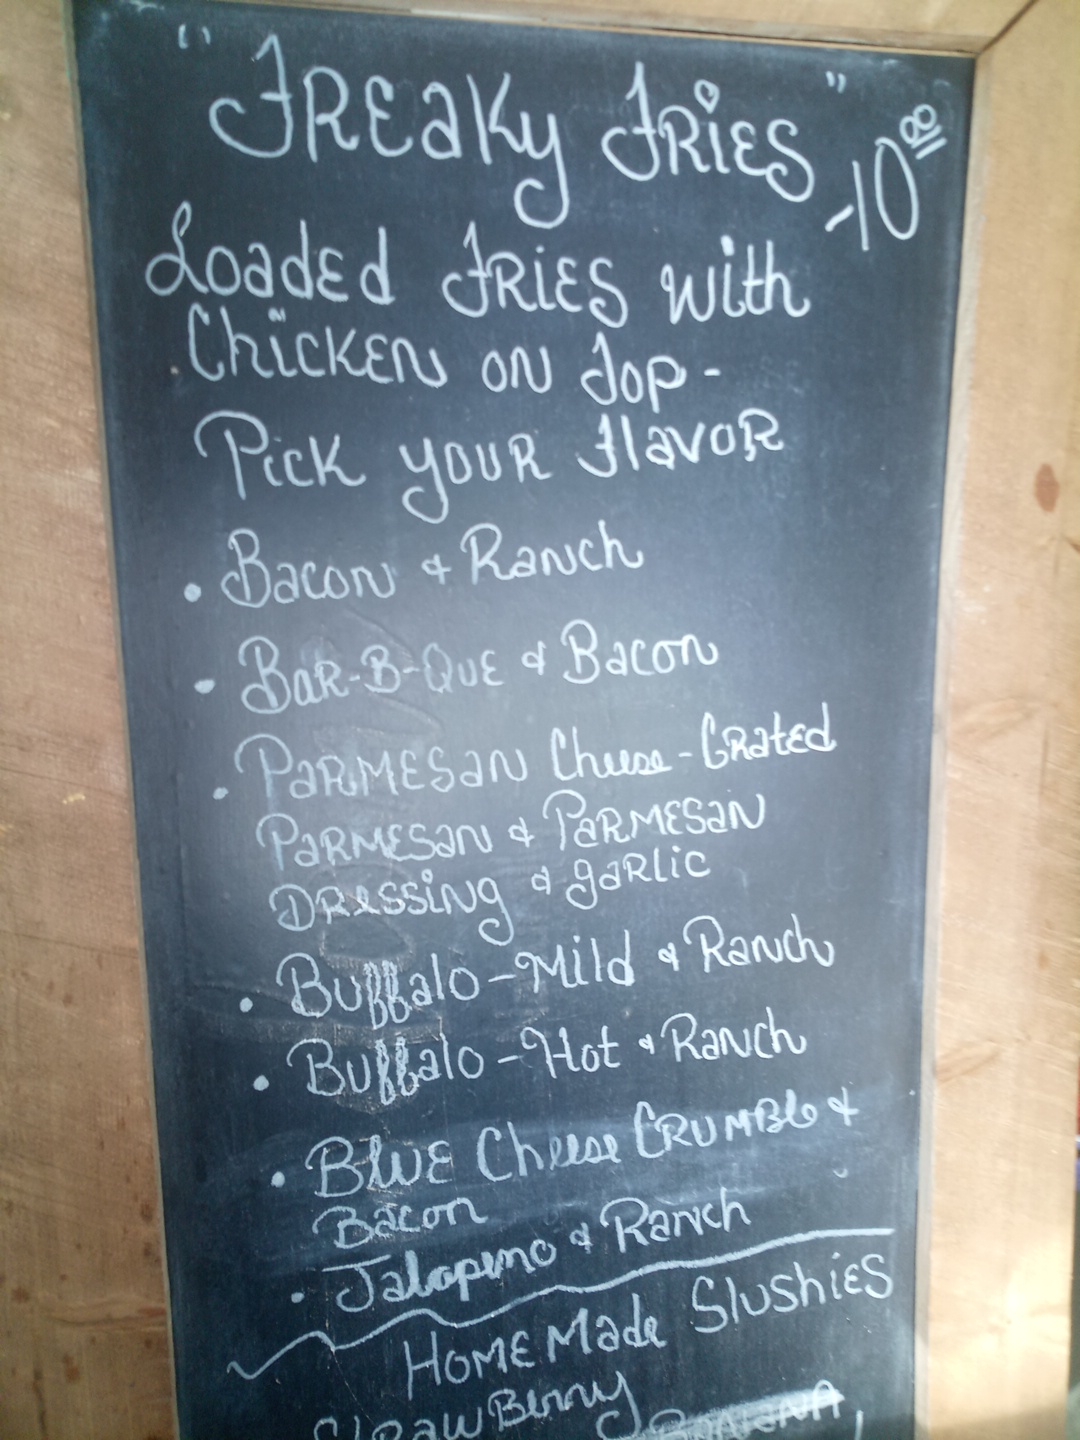 "Freaky Fries" -10⁰⁰
Loaded Fries with
Chicken on Top-
Pick your Flavor
• Bacon & Ranch
• Bar-B-Que & Bacon
• Parmesan Cheese-Grated
Parmesan & Parmesan
Dressing & garlic
• Buffalo-Mild & Ranch
• Buffalo-Hot & Ranch
• Blue Cheese Crumble &
Bacon
• Jalapeno & Ranch
HomeMade Slushies
StrawBerry Banana,